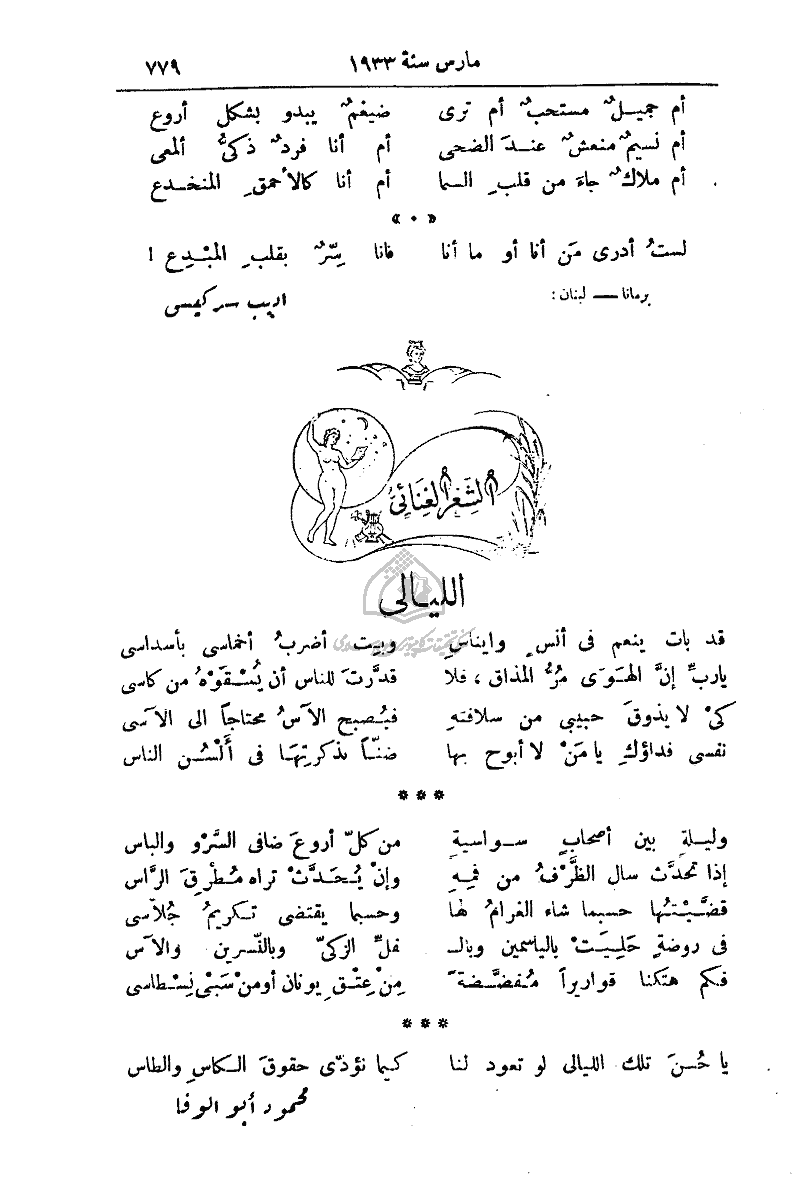 مارس سنة ١٩٣٣ ٧٧٩
أم جميـلٌ مستحبٌ أم ترى ضيغمٌ يبدو بشكل أروع
أم نسيمٌ منعشٌ عنـدَ الضحى أم أنا فردٌ ذكىٌّ ألمعى
أم ملاكٌ جاءَ من قلبِ السما أم أنا كالأحمقِ المنخدع
« ٠ »
لستُ أدرى مَن أنا أو ما أنا فانا سِرٌّ بقلبِ المبْـدِع !
برمانا — لبنان :
اديب سركيس
الشعر الغنائى
الليـالى
قد بات ينعم فى أنسٍ وايناسِ وبيت أضربُ أخماسى بأسداسى
ياربِّ إنَّ الهـَوَى مرُّ المذاق ، فلا قدَّرتَ للناس أن يُسْـقَوْهُ من كاسى
كىْ لا يذوقَ حبيبى من سلافتهِ فيُصبح الآسُ محتاجاً الى الآسى
نفسى فداؤكِ يا مَنْ لا أبوح بها ضنّـاً بذكرتِهَـا فى ألْسُـن الناس
***
وليـلةِ بين أصحابٍ سـواسيةٍ من كلّ أروعَ ضافى السَّرْو والباس
إذا تحدَّث سال الظَّرْفُ من فمِهِ وإنْ يُحَـدَّثْ تراه مُطْرِقَ الرَّاس
قضَّيْـتُها حسبما شاء الغرامُ لها وحسبما يقتضى تـكريمُ جُلاّسى
فى روضةٍ حَلِيَتْ بالياسمين وبالـ فلِّ الزكىِّ وبالنّسرين والآس
فـكم هتكنا قواريراً مُفضَّـضةً مِنْ عِتْـقِ يونان أو منْ سَبْىِ نِسْطاسى
***
يا حُسنَ تلك الليالى لو تعود لنا كـيما نؤدّى حقوقَ الـكاسِ والطاس
محمود أبو الوفا